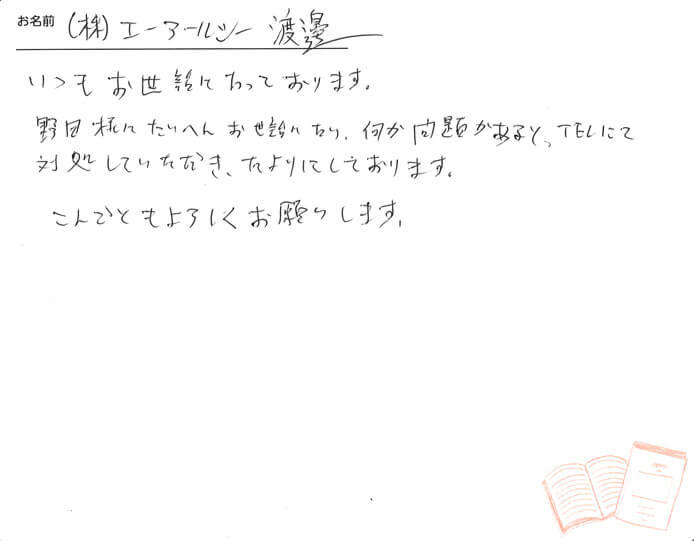 お名前 (株) エーアールシー 渡邉
いつもお世話になっております。
野田様にたいへんお世話になり、何か問題があると、TELにて
対処していただき、たよりにしております。
こんごともよろしくお願いします。